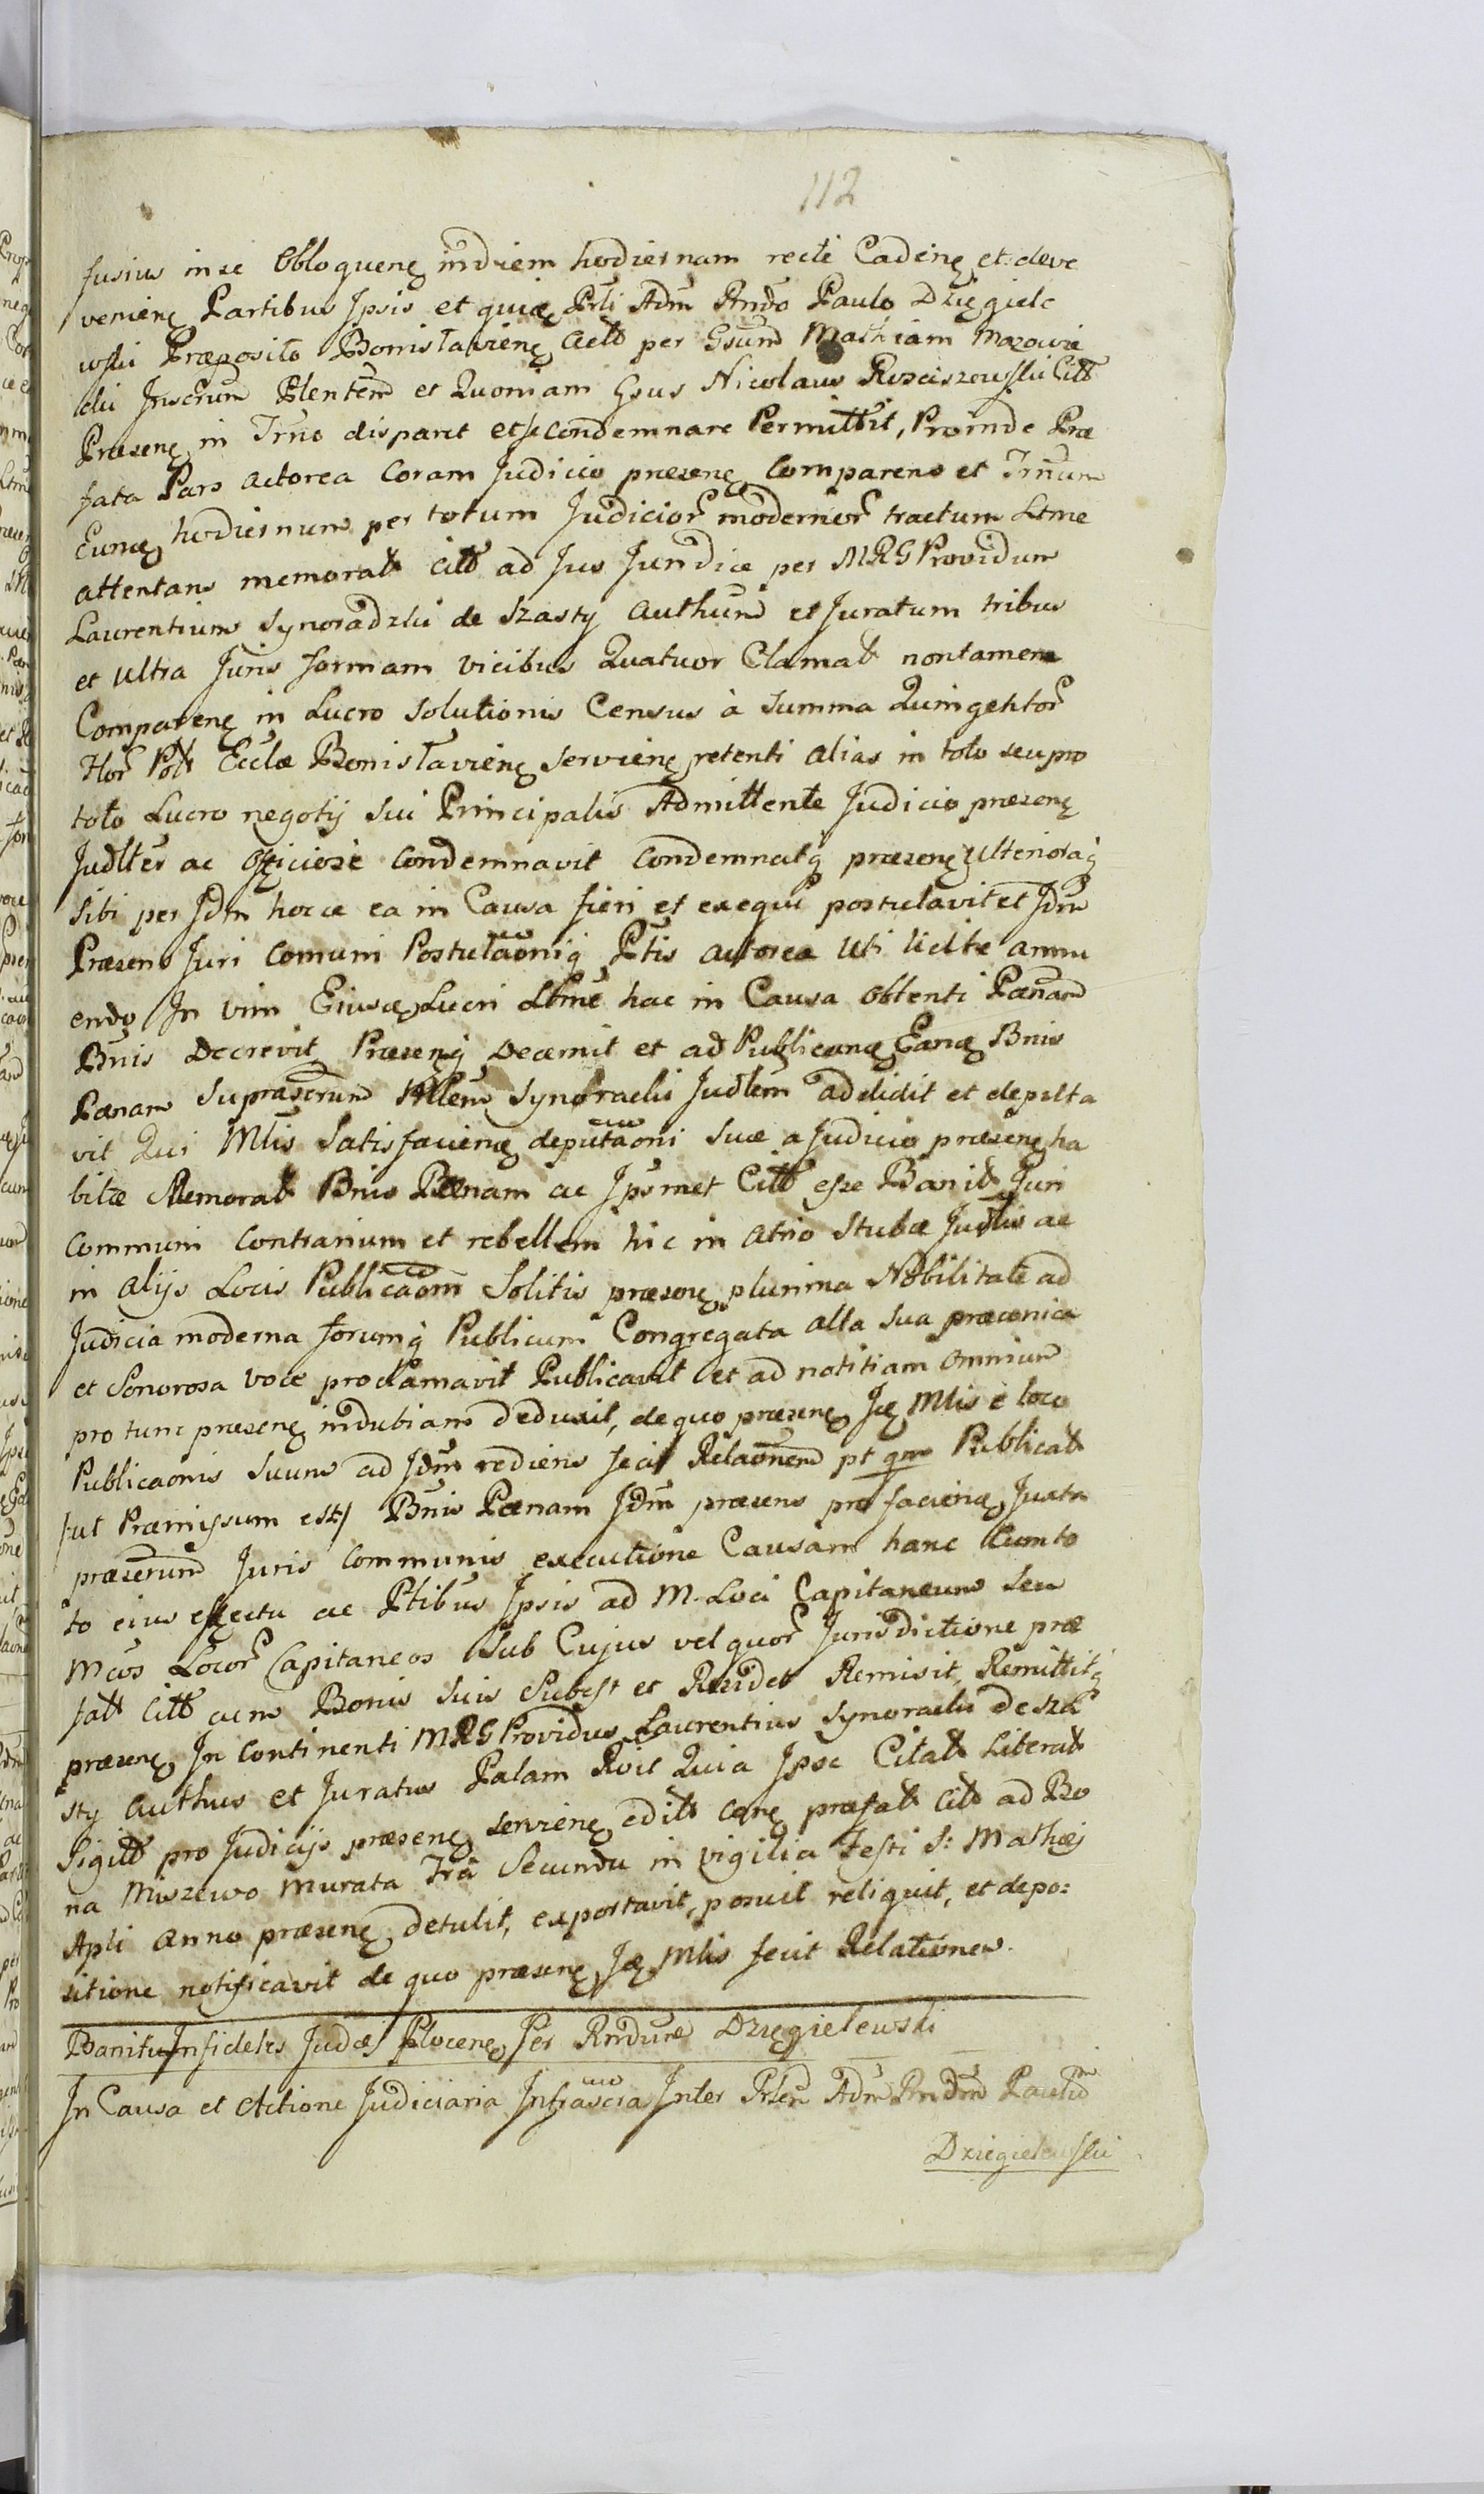 112
fusius in se Obloquenę in diem hodiernam recte Cadenę et deve
venienę Partibus Jpsis et quię Prli Adm Rndo Paulo Dzięgiele
wski Præposito Bonislavienę Actt per Gsum Mathiam Mazowie
cki Jnscrum Plentem et Quoniam Gsus Nicolaus Rosciszewski Citt
Præsenę in Trno disparet et se condemnare Permittit, Proinde Præ
fata Pars actorea Coram Judicio præsenę Comparens et Trnum
Eumę hodiernum per totum Judicior modernor tractum Ltme
attentans memorat Citt ad Jus Juridice per MRG Providum
Laurentium Synoradzki de Szasty Authum et Juratum tribus
et ultra Juris formam vicibus Quatuor Clamat non tamen
Comparenę in Lucro Solutionis Census à Summa Quingentor
Flor Pol Eccla Bonislavienę servienę retenti alias in toto seu pro
toto Lucro negotij sui Principalis Admittente Judicio præsenę
Judlter ac Officiose Condemnavit Condemnatq præsenę Ulterioraq
sibi per Jdm hocce ea in Causa fieri et exequi postulavit et Jdm
Præsens Juri Comuni Postulaoniq Ptis actorea Uti licite annu
endo Jn vim Eiusę Lucri Ltme hac in Causa obtenti Pænam
Bnis Decrevit Præsenq Decernit et ad Publicanę Eanę Bnis
Pænam Supræscrum Mlem Synoradzki Judlem addidit et deputa
vit Qui Mlis Satisfacienę deputaoni suæ a Judicio præsenę ha
bitæ Memorat Bnis Pænam ac Jpsmet Citt esse Banit Juri
Communi Contrarium et rebellem hic in atrio Stubæ Judlis ac
in alijs Locis Publicaom Solitis præsenę plurima Nobilitate ad
Judicia moderna forumq Publicum Congregata alta sua præconica
et Sonorosa voce proclamavit Publicavit et ad notitiam omnium
pro tunc præsenę indubiam deduxit, de quo præsenęJę Mlis è loco
Publicaonis suum ad Jdm rediens fecit Relaonem pt qm Publicat
/ut Præmissum est/ Bnis Pænam Jdm præsens pro facienę Juxta
præscrum Juris communis executione Causam hanc Cum to
to eius effectu ac Ptibus Jpsis ad M. Loci Capitaneum seu
Mcos Locor Capitaneos Sub Cujus vel quor Jurisdictione præ
fatt Citt cum Bonis suis Subest et Residet Remisit, Remittitq
præsenę Jn continenti MRG Providus Laurentius Synoradzki de Sza
sty Authus et Juratus Palam Rvit Quia Jpse Citat Literat
Sigilt pro Judicijs præsenę servienę edit carę præfat Citt ad Bo
na Miszewo Murata Fra Secunda in vigilia Festi S: Mathæj
Apli anno præsenę detulit, exportavit, posuit reliquit, et depo:
sitione notificavit de quo præsenę Ję Mlis fecit Relationem.
Banitu Jnfideles Judæj Plocenę Per Rndum Dzięgielewski
In Causa et Actione Judiciaria Jnfrascra Jnter Prlem Adm Rndm Paulum
Dziegielewski